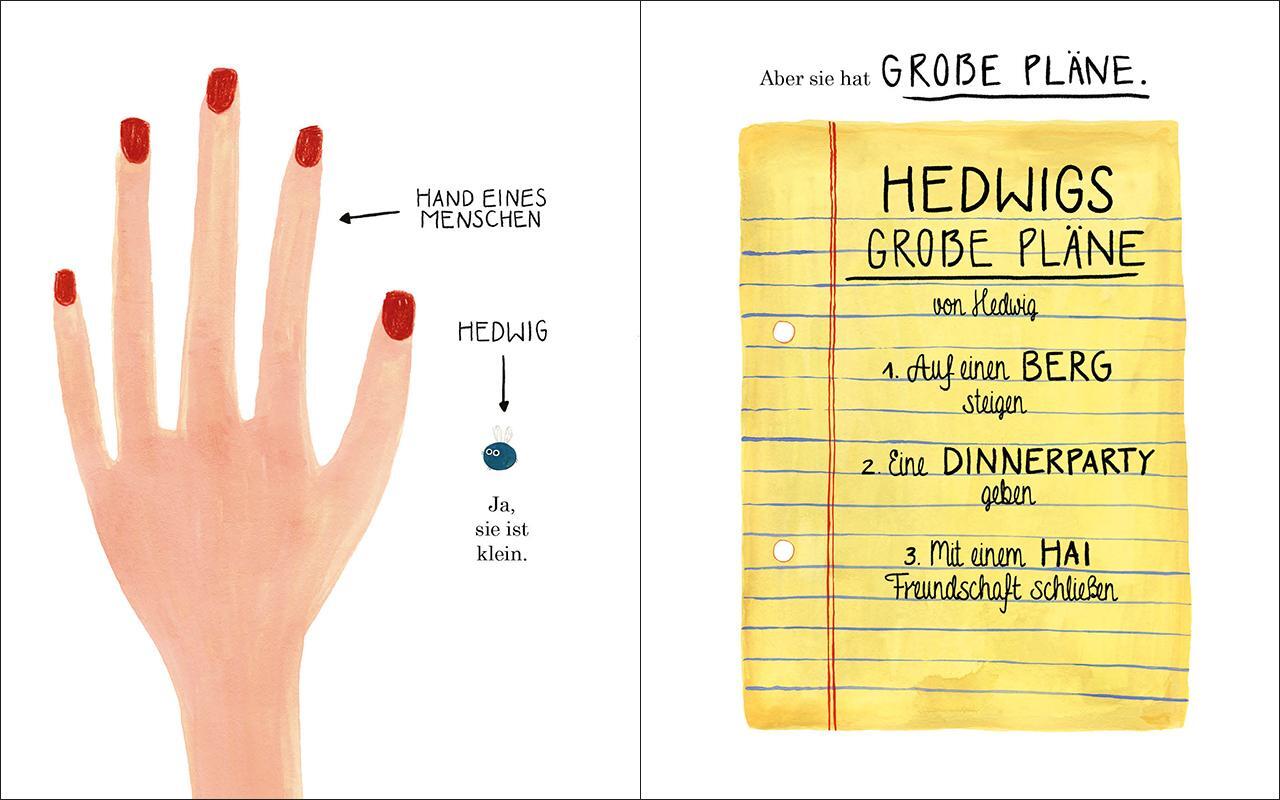 HAND EINES
MENSCHEN
HEDWIG
Ja,
sie ist
klein.
Aber sie hat GROẞE PLÄNE.
HEDWIGS
GROẞE PLÄNE
von Hedwig
1. Auf einen BERG
steigen
2. Eine DINNERPARTY
geben
3. Mit einem HAI
Freundschaft schließen